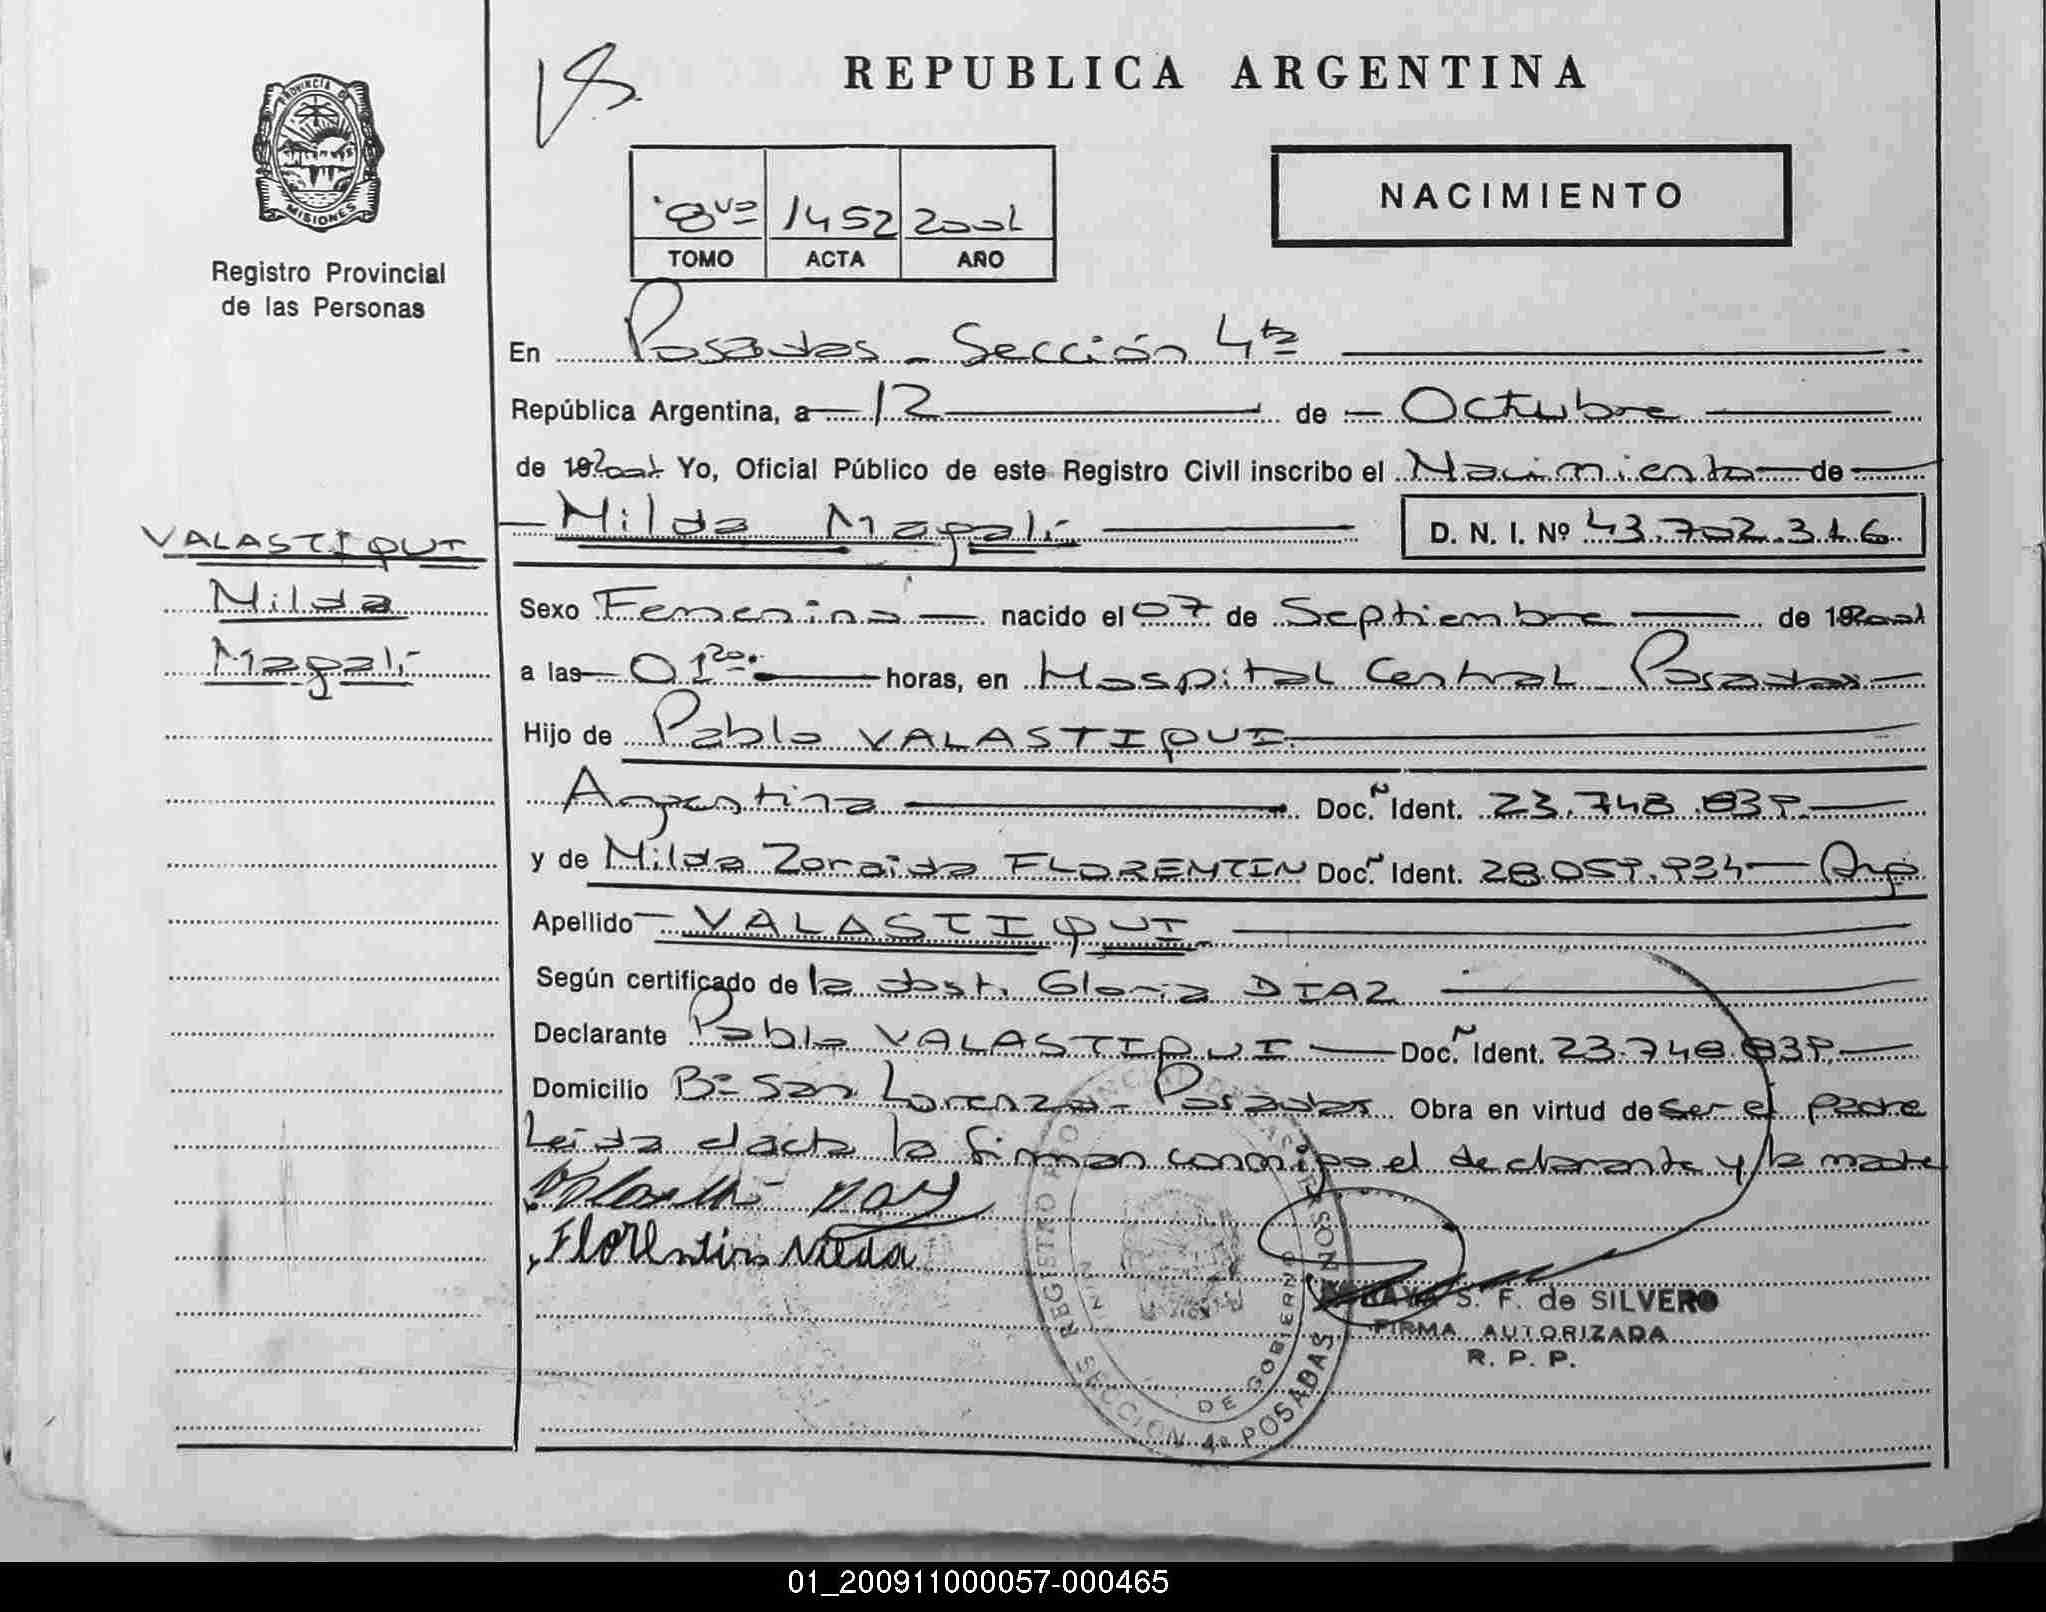 REPUBLICA ARGENTINA
PROVINCIA DE MISIONES
Registro Provincial
de las Personas
NACIMIENTO
8vo 1452 2001
TOMO ACTA AÑO
En Posadas - Sección 4ta
República Argentina, a 12 de Octubre
de 192001 Yo, Oficial Público de este Registro Civil inscribo el Nacimiento de
Milda Magalí D. N. I. Nº 43.702.316
VALASTIQUI
Milda
Magalí
Sexo Femenino nacido el 07 de Septiembre de 192001
a las 01 20 horas, en Hospital Central Posadas
Hijo de Pablo VALASTIQUI
Argentina Doc. Ident. 23.748.839
y de Milda Zoraida FLORENTIN Doc. Ident. 28.059.934 Arg
Apellido VALASTIQUI
Según certificado de la obst. Gloria DIAZ
Declarante Pablo VALASTIQUI Doc. Ident. 23.748.839
Domicilio Bº San Lorenzo - Posadas Obra en virtud de ser el padre
Leida el acta la firman conmigo el declarante y la madre
Florentin Milda
S. F. de SILVERO
FIRMA AUTORIZADA
R. P. P.
REGISTRO PROVINCIAL DE LAS PERSONAS
DE GOBIERNO
SECCION 4ª POSADAS
01_200911000057-000465